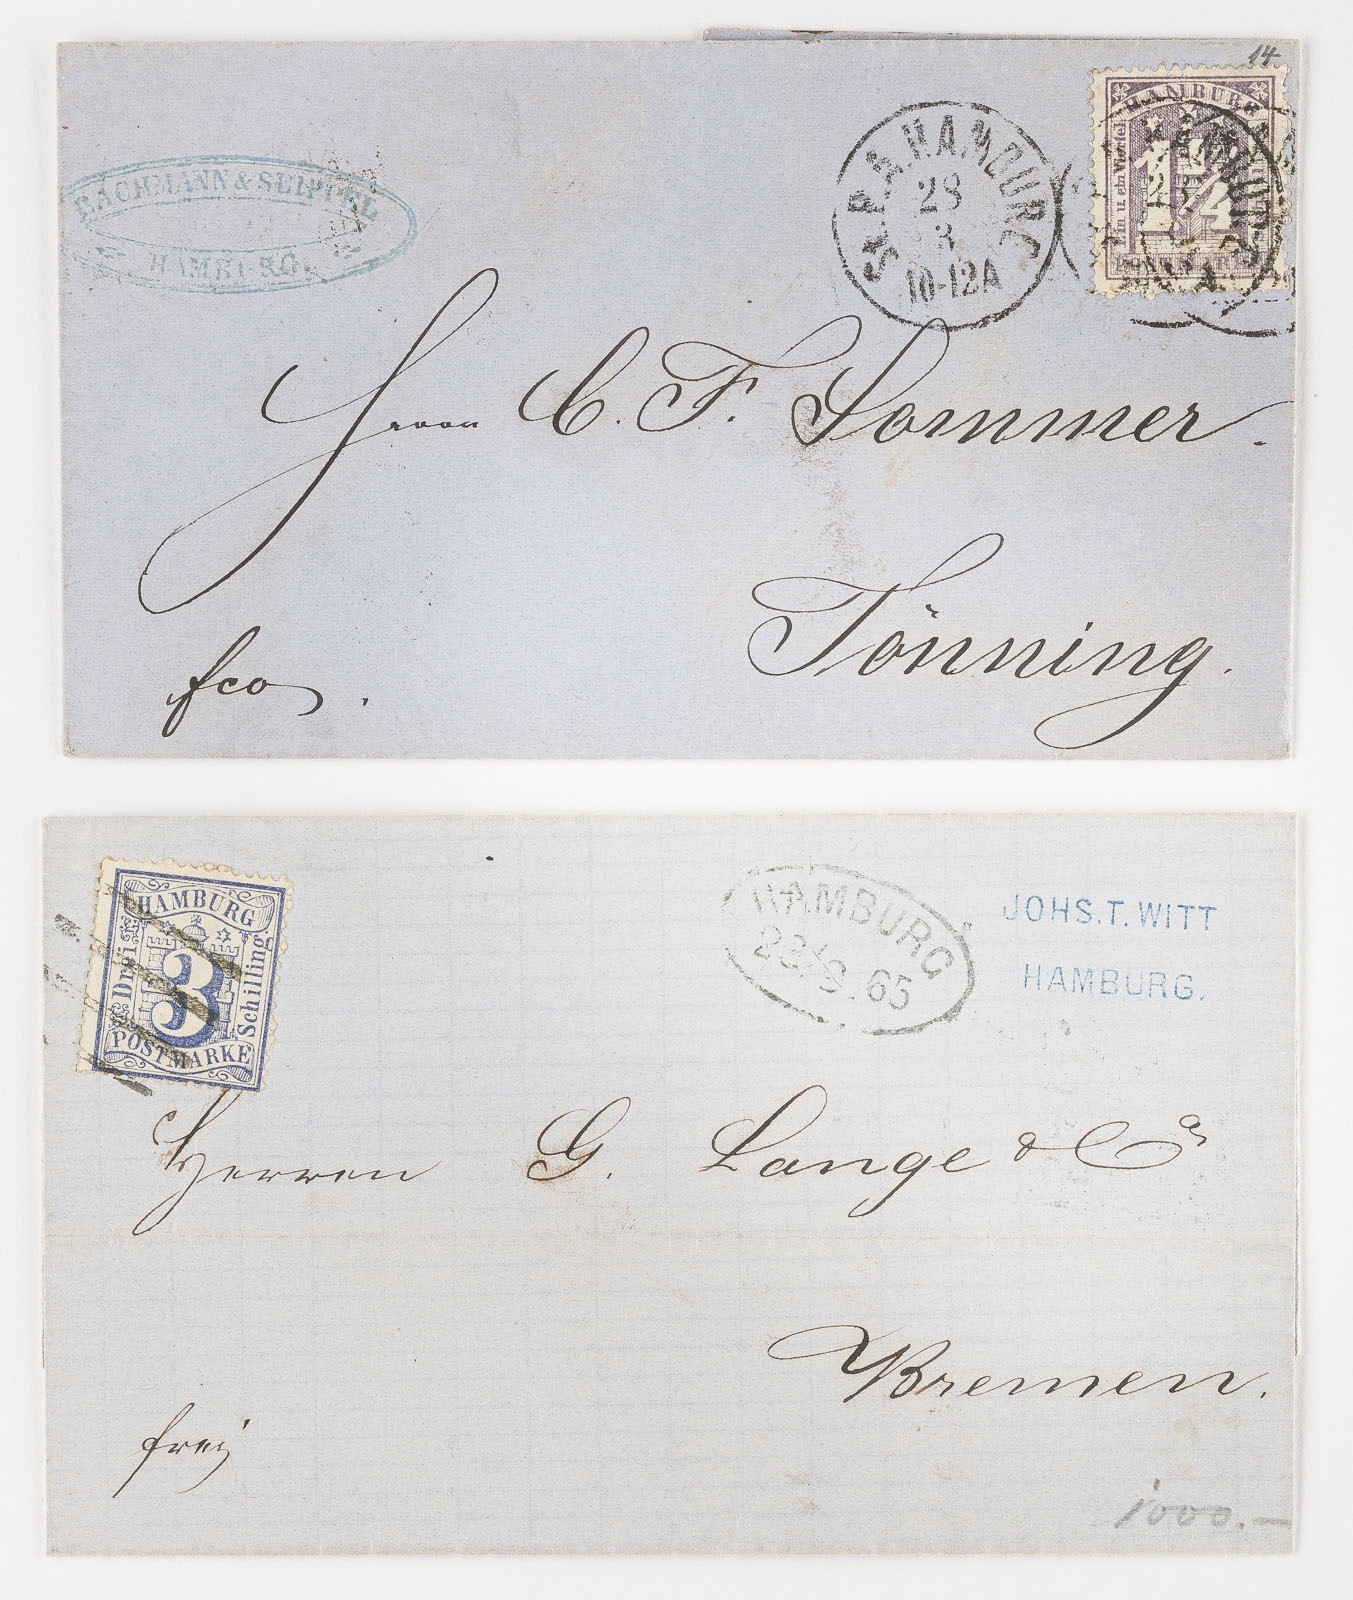 14
BACHMANN & SEIPPEL
HAMBURG.
S.P.A. HAMBURG
28
3
10-12A
HAMBURG
1 1/4
Ein u ein Viertel
Herrn C. F. Sommer.
Tönning.
fco.
HAMBURG
Drei
3
Schilling
POSTMARKE
HAMBURG
22/9.65
JOHS. T. WITT
HAMBURG.
Herren G. Lange & Co
Bremen.
frey
1000.-